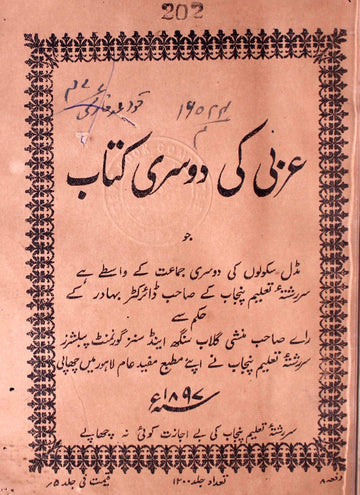 202
۱۶۰۲۴
عربی کی دوسری کتاب
جو
مڈل سکولوں کی دوسری جماعت کے واسطے ہے
سررشتۂ تعلیم پنجاب کے صاحب ڈائرکٹر بہادر کے
حکم سے
راے صاحب منشی گلاب سنگھ اینڈ سنز گورنمنٹ پبلشرز
سررشتۂ تعلیم پنجاب نے اپنے مطبع مفید عام لاہور میں چھاپی
سنہ ۱۸۹۷ء
سررشتۂ تعلیم پنجاب کی بے اجازت کوئی نہ چھاپے
تعداد جلد ۱۲۰۰
قیمت فی جلد ۵/